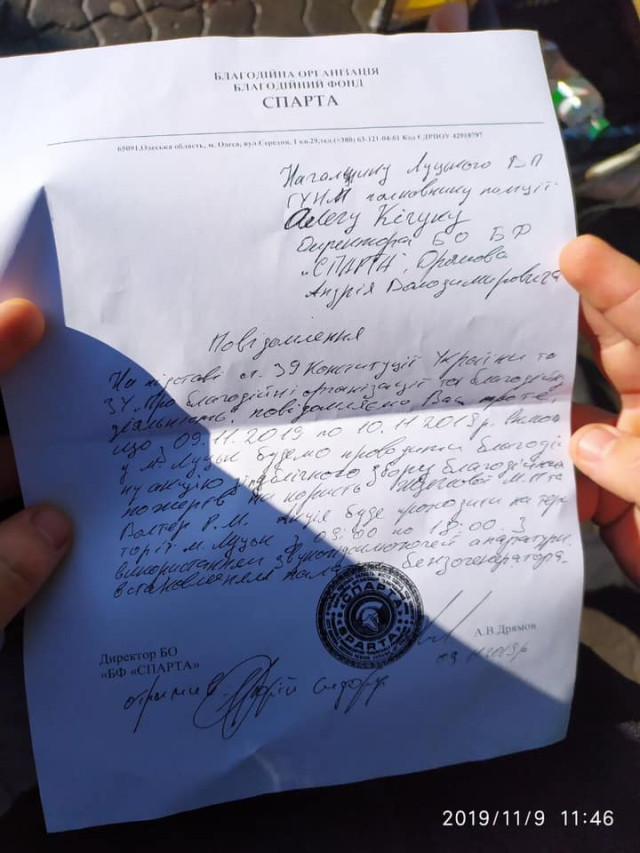 БЛАГОДІЙНА ОРГАНІЗАЦІЯ
БЛАГОДІЙНИЙ ФОНД
СПАРТА
65091, Одеська область, м. Одеса, вул Середня, 1 кв.29, тел.(+380) 63-121-04-61 Код ЄДРПОУ 42918797
Начальнику Луцького ВП
ГУНП полковнику поліції
Олегу Кігуну
Директора БО БФ
"СПАРТА", Дрямова
Андрія Володимировича
Повідомлення
На підставі ст. 39 Конституції України та
ЗУ "Про благодійні організації та благодійну
діяльність" повідомляємо Вас про те,
що 09.11.2019 по 10.11.2019р.
у м. Луцьк будемо проводити благодій
ну акцію публічного збору благодійних
пожертв на користь М.П та
Волтер Р.М. Акція буде проходити на тери
торії м. Луцьк з 09:00 по 18:00. З
використанням звукопідсилюючої апаратури,
встановленням бензогенератора.
СПАРТА
SPARTA
Директор БО
«БФ «СПАРТА»
А.В.Дрямов
отримав
2019/11/9 11:46